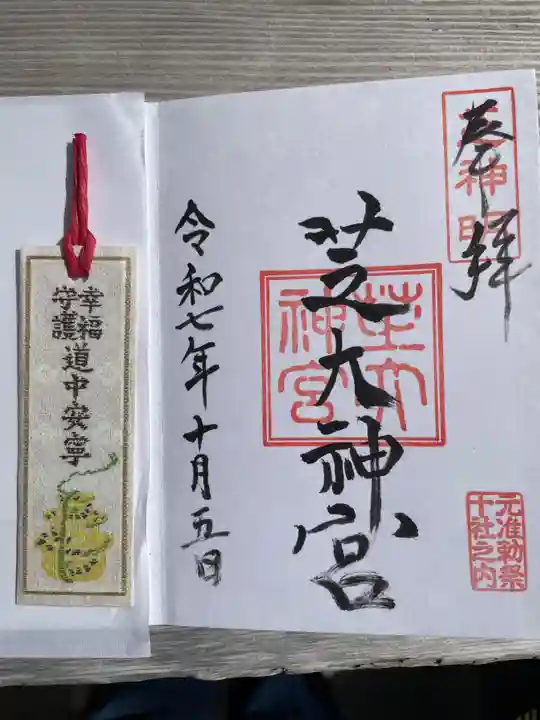 奉拝
芝神明
芝大神宮
芝大
神宮
元准勅祭
十社之内
令和七年十月五日
幸福
守護
道中安寧